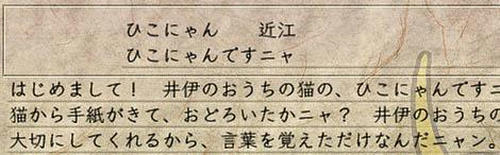 ひこにゃん　　近江
ひこにゃんですニャ
はじめまして！　井伊のおうちの猫の、ひこにゃんですニ
猫から手紙がきて、おどろいたかニャ？　井伊のおうちの
大切にしてくれるから、言葉を覚えただけなんだニャン。